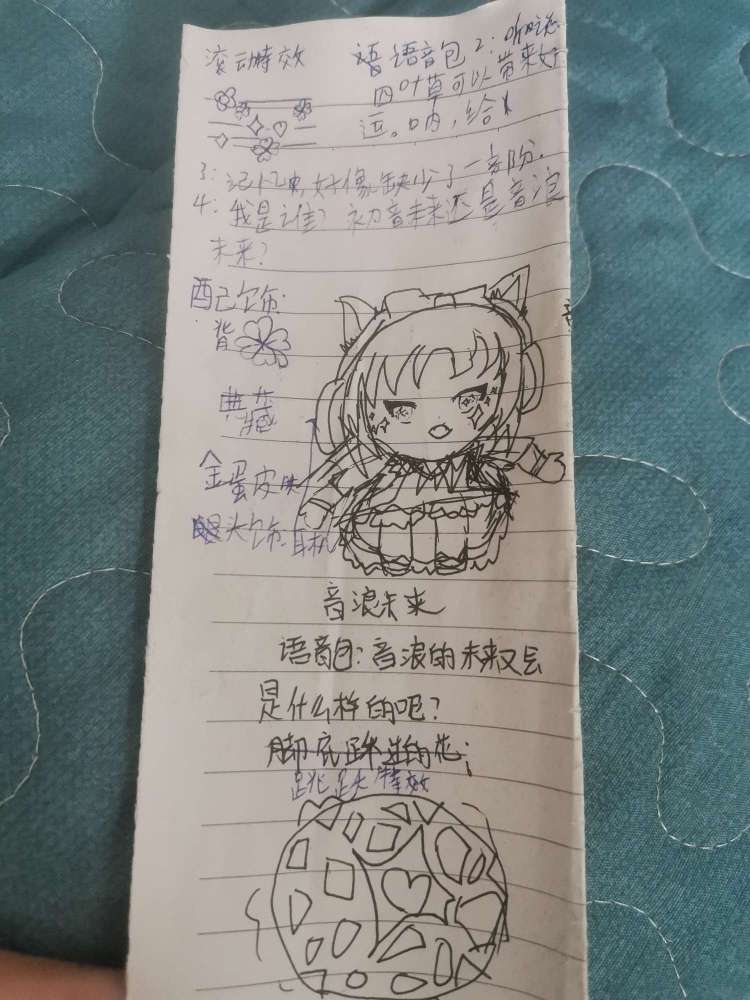 滚动特效
语音包2:听说
四叶草可以带来好
运。呐,给
3:记忆里,好像缺少了一音阶.
4:我是谁?初音未来还是音浪
未来?
配饰:
背
典藏
金蛋皮肤
头饰:耳机
音浪未来
语音包:音浪的未来又会
是什么样的吧?
脚底踩出的花:
跳跃特效